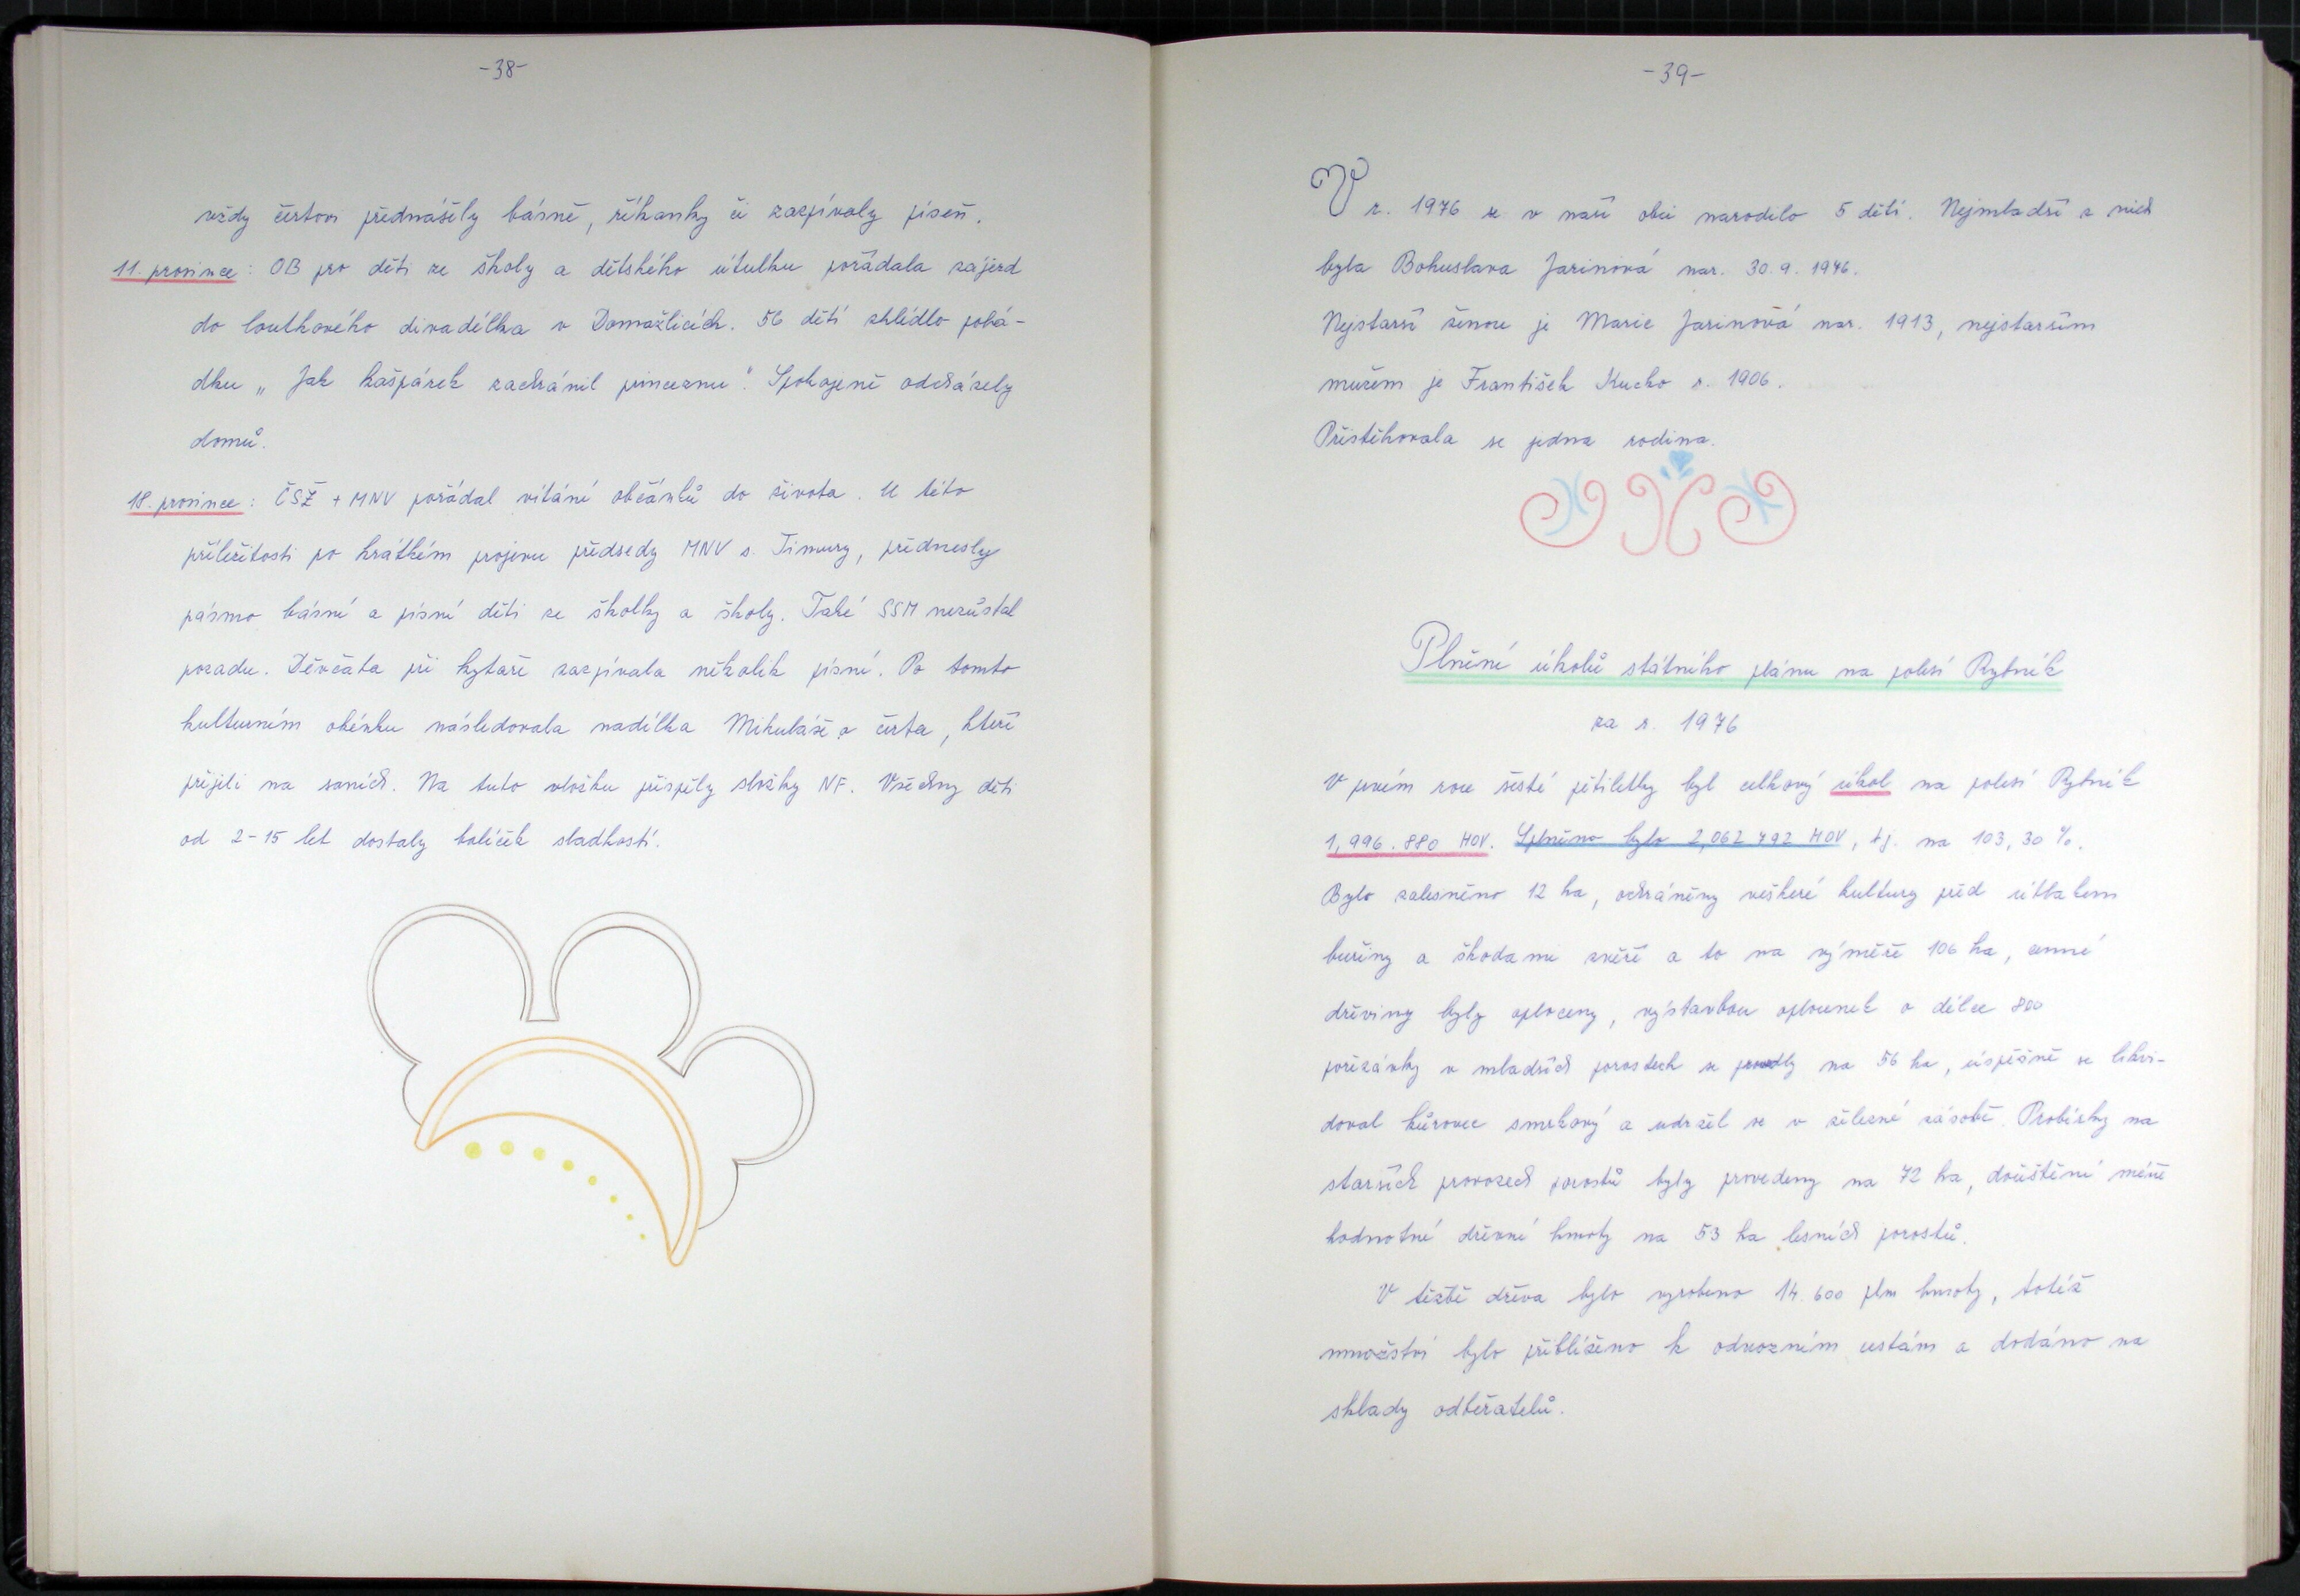 -38-
vždy čertovi přednášely básně, říkanky či zazpívaly píseň.
11. prosince: OB pro děti ze školy a dětského útulku pořádala zájezd
do loutkového divadélka v Domažlicích. 56 dětí shlédlo pohá-
dku „Jak Kašpárek zachránil princeznu". Spokojeně odcházely
domů.
18. prosince: ČSŽ + MNV pořádal vítání občánků do života. U této
příležitosti po krátkém projevu předsedy MNV s. Timury, přednesly
pásmo básní a písní děti ze školky a školy. Také SSM nezůstal
pozadu. Děvčata při kytaře zazpívala několik písní. Po tomto
kulturním okénku následovala nadílka Mikuláše a čerta, kteří
přijeli na saních. Na tuto vložku přispěly složky NF. Všechny děti
od 2-15 let dostaly balíček sladkostí.
-39-
V r. 1976 se v naší obci narodilo 5 dětí. Nejmladší z nich
byla Bohuslava Jarinová nar. 30.9. 1976.
Nejstarší ženou je Marie Jarinová nar. 1913, nejstarším
mužem je František Kucko r. 1906.
Přistěhovala se jedna rodina.
Plnění úkolů státního plánu na polesí Rybník
za r. 1976
V prvém roce šesté pětiletky byl celkový úkol na polesí Rybník
1,996.880 HOV. Splněno bylo 2,062 792 HOV, tj. na 103,30 %.
Bylo zalesněno 12 ha, ochráněny veškeré kultury před útlakem
buřiny a škodami zvěří a to na výměře 106 ha, cenné
dřeviny byly oploceny, výstavbou oplocenek o délce 800
pořezávky v mladších porostech se provedly na 56 ha, úspěšně se likvi-
doval kůrovec smrkový a udržel se v železné zásobě. Probírky na
starších provozech porostů byly provedeny na 72 ha, dočištění méně
hodnotné dřevní hmoty na 53 ha lesních porostů.
V těžbě dřeva bylo vyrobeno 14.600 plm hmoty, totéž
množství bylo přiblíženo k odvozním cestám a dodáno na
sklady odběratelů.